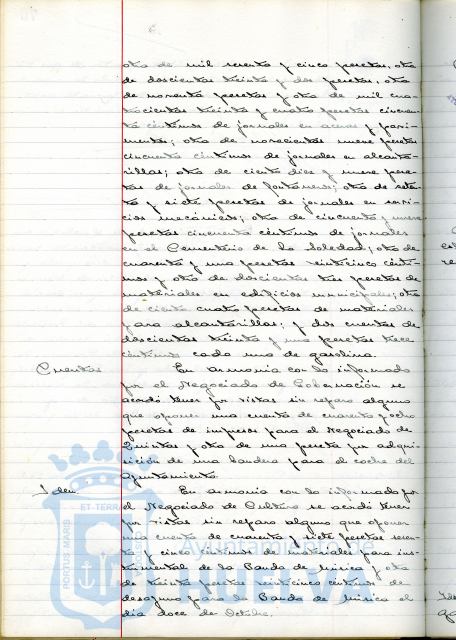 otra de mil sesenta y cinco pesetas, otra
de doscientas treinta y dos pesetas, otra
de noventa pesetas y otra de mil cua-
trocientas treinta y cuatro pesetas cincuen-
ta céntimos de jornales en aceras y pavi-
mentos; otra de novecientas nueve pesetas
cincuenta céntimos de jornales en alcanta-
rillas; otra de ciento diez y nueve pese-
tas de jornales de fontaneros; otra de seten-
ta y siete pesetas de jornales en servi-
cios mecánicos; otra de cincuenta y nueve
pesetas cincuenta céntimos de jornales
en el Cementerio de la Soledad; otra de
cuarenta y una pesetas veinticinco cénti-
mos y otra de doscientas tres pesetas de
materiales en edificios municipales; otra
de ciento cuatro pesetas de materiales
para alcantarillas; y dos cuentas de
doscientas treinta y una pesetas trece
céntimos cada una de gasolina.
Cuentas En armonía con lo informado
por el Negociado de Gobernación se
acordó tener por vistas sin reparo alguno
que oponer una cuenta de cuarenta y ocho
pesetas de impresos para el Negociado de
Quintas y otra de una peseta por adqui-
sición de una bandera para el coche del
Ayuntamiento.
Idem. En armonía con lo informado por
el Negociado de Cultura se acordó tener
por vistas sin reparo alguno que oponer
una cuenta de cuarenta y siete pesetas seten-
ta y cinco céntimos de materiales para ins-
trumental de la Banda de Música y otra
de treinta pesetas veinticinco céntimos de
desayuno para la Banda de Música el
día doce de Octubre.
PORTUS MARIS
ET TERRA
Ayuntamiento de